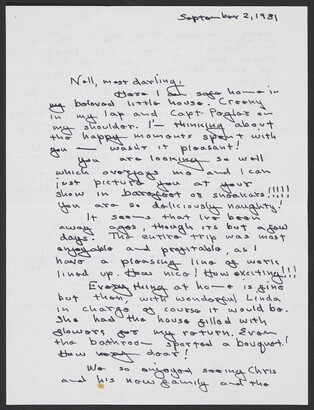 September 2, 1981
Nell, most darling,
Here I am safe home in
my beloved little house. Creeny
in my lap and Capt. Pegler on
my shoulder. I'm thinking about
the happy moments spent with
you — wasn't it pleasant!
you are looking so well
which overjoys me and I can
just picture you at your
show in barefoot or sneakers!!!!!
You are so deliciously naughty!
It seems that I've been
away ages, though its but a few
days. The entire trip was most
enjoyable and profitable, as I
have a pleasing line of work
lined up. How nice! How exciting!!!
Everything at home is fine
but then, with wonderful Linda
in charge of course it would be.
She had the house filled with
flowers for my return. Even
the bathroom sported a bouquet!
How very dear!
We so enjoyed seeing Chris
and his new family and the